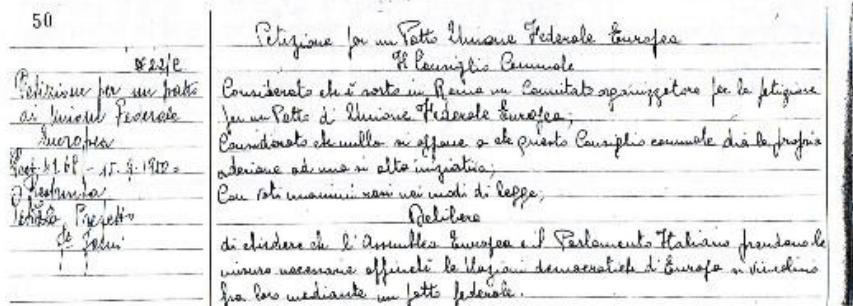 50
N° 22/C
Petizione per un patto
di Unione Federale
Europea
Petizione per un Patto Unione Federale Europea
Il Consiglio Comunale
Considerato che è sorto in Roma un Comitato organizzatore per la petizione
per un Patto di Unione Federale Europea;
Considerato che nulla si oppone a che questo Consiglio comunale dia la propria
adesione ad una sì alta iniziativa;
Con voti unanimi resi nei modi di legge;
Delibera
di chiedere che l'Assemblea Europea e il Parlamento Italiano prendano le
misure necessarie affinchè le Nazioni democratiche d'Europa si vincolino
fra loro mediante un patto federale.